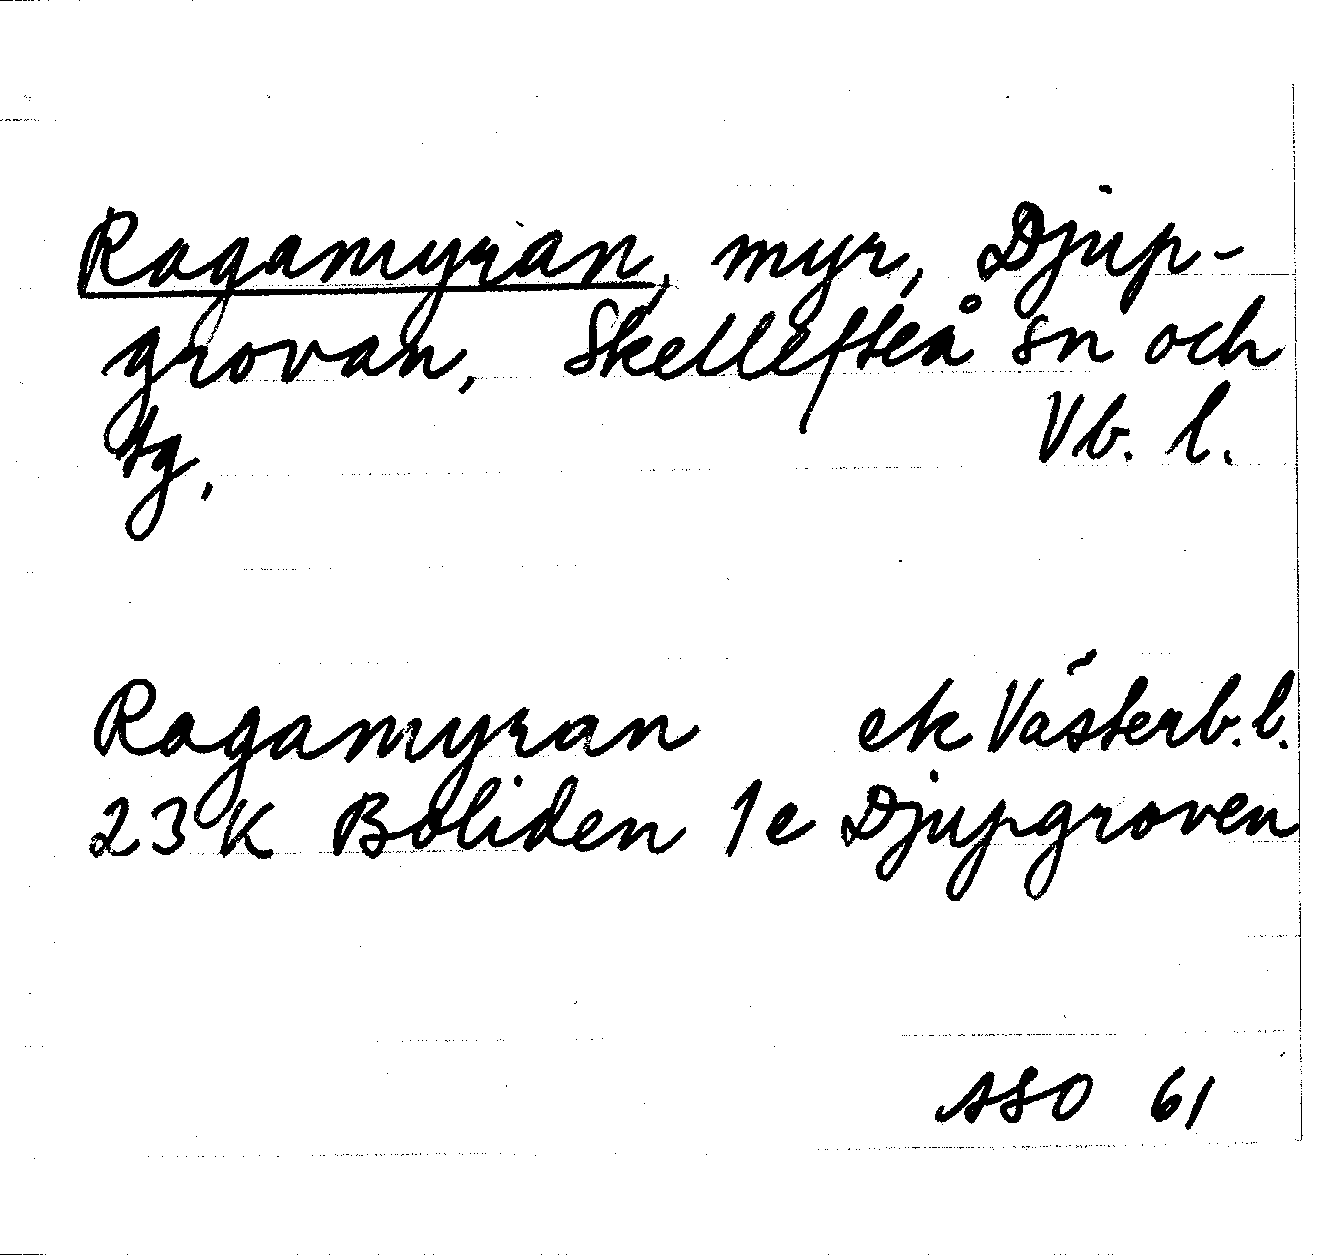 Ragamyran, myr, Djup-
grovan, Skellefteå sn och
tg, Vb. l.
Ragamyran ek Västerb. l.
23 K Boliden 1e Djupgroven
ASO 61